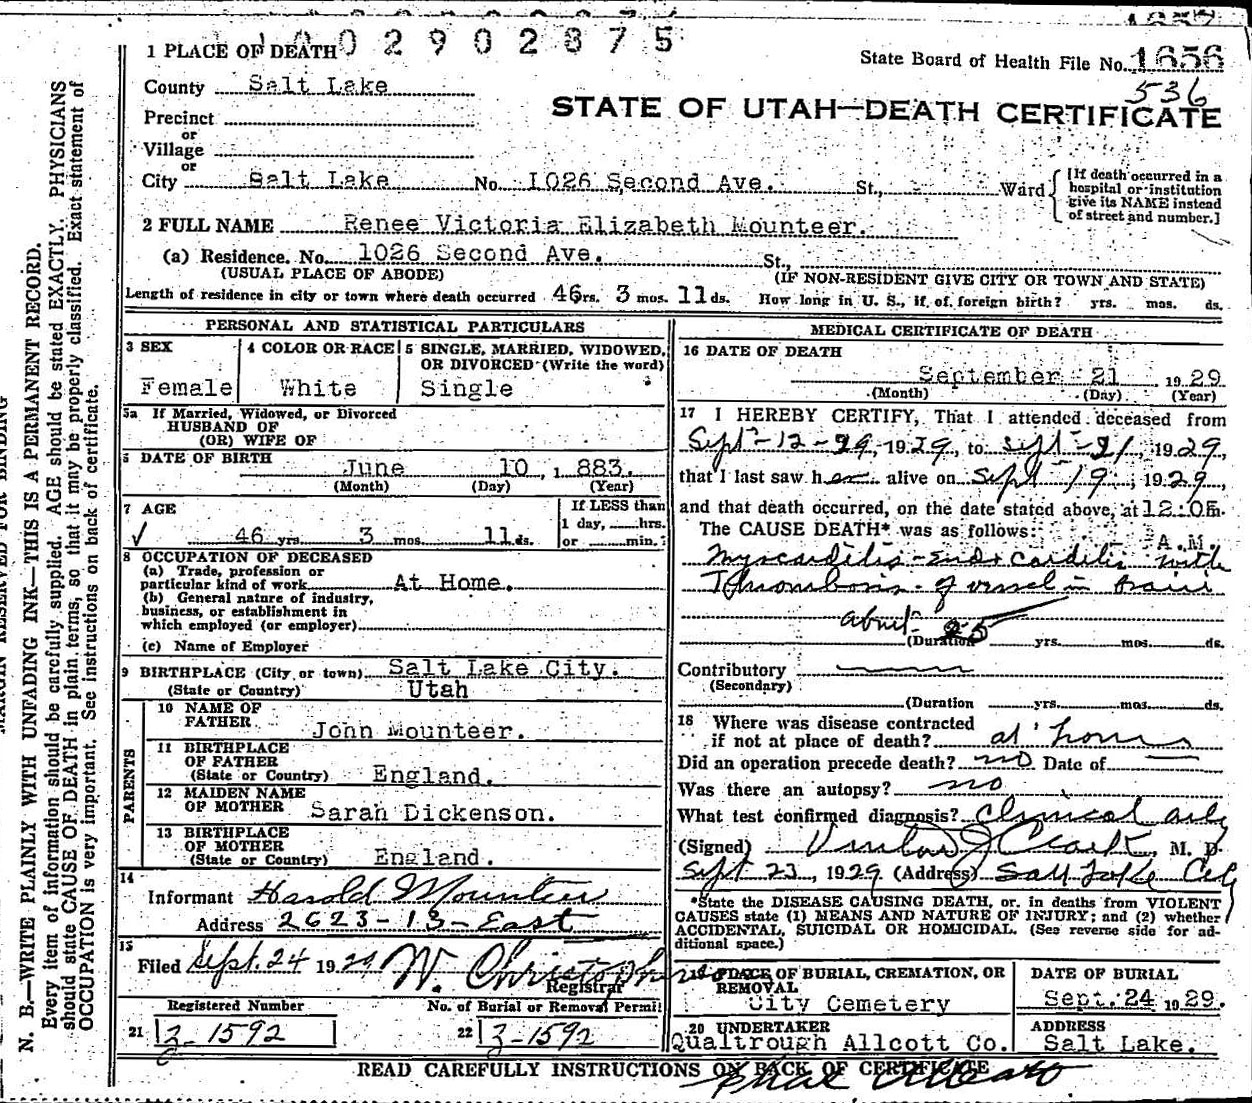 1002902875
1 PLACE OF DEATH
State Board of Health File No. 1656
536
County Salt Lake
STATE OF UTAH—DEATH CERTIFICATE
Precinct
or
Village
or
City Salt Lake No. 1026 Second Ave. St., Ward
[If death occurred in a hospital or institution give its NAME instead of street and number.]
2 FULL NAME Renee Victoria Elizabeth Mounteer.
(a) Residence. No. 1026 Second Ave. St.,
(USUAL PLACE OF ABODE) (IF NON-RESIDENT GIVE CITY OR TOWN AND STATE)
Length of residence in city or town where death occurred 46 yrs. 3 mos. 11 ds. How long in U. S., if of foreign birth? yrs. mos. ds.
PERSONAL AND STATISTICAL PARTICULARS
3 SEX 4 COLOR OR RACE 5 SINGLE, MARRIED, WIDOWED,
OR DIVORCED (Write the word)
Female White Single
5a If Married, Widowed, or Divorced
HUSBAND OF
(OR) WIFE OF
6 DATE OF BIRTH June 10, 1883.
(Month) (Day) (Year)
7 AGE If LESS than
1 day, hrs.
46 yrs. 3 mos. 11 ds. or min.
8 OCCUPATION OF DECEASED
(a) Trade, profession or
particular kind of work At Home.
(b) General nature of industry,
business, or establishment in
which employed (or employer)
(c) Name of Employer
9 BIRTHPLACE (City or town) Salt Lake City.
(State or Country) Utah
PARENTS
10 NAME OF
FATHER John Mounteer.
11 BIRTHPLACE
OF FATHER
(State or Country) England.
12 MAIDEN NAME
OF MOTHER Sarah Dickenson.
13 BIRTHPLACE
OF MOTHER
(State or Country) England.
14
Informant Harold Mounteer
Address 2623-13-East
15
Filed Sept. 24 1929 W. Christopherson
Registrar
Registered Number No. of Burial or Removal Permit
21 3-1592 22 3-1592
MEDICAL CERTIFICATE OF DEATH
16 DATE OF DEATH
September 21 1929
(Month) (Day) (Year)
17 I HEREBY CERTIFY, That I attended deceased from
Sept-12-29, 1929, to Sept-21, 1929,
that I last saw her alive on Sept-19, 1929,
and that death occurred, on the date stated above, at 12:05 m.
The CAUSE DEATH* was as follows: A.M.
Myocarditis-Endocarditis with
Thrombosis-of vessel in brain
about 25
(Duration yrs. mos. ds.
Contributory
(Secondary)
(Duration yrs. mos. ds.
18 Where was disease contracted
if not at place of death? at home
Did an operation precede death? no Date of
Was there an autopsy? no
What test confirmed diagnosis? Clinical only
(Signed) Clark, M. D.
Sept 23, 1929 (Address) Salt Lake City
*State the DISEASE CAUSING DEATH, or in deaths from VIOLENT
CAUSES state (1) MEANS AND NATURE OF INJURY; and (2) whether
ACCIDENTAL, SUICIDAL OR HOMICIDAL. (See reverse side for ad-
ditional space.)
19 PLACE OF BURIAL, CREMATION, OR
REMOVAL
City Cemetery
DATE OF BURIAL
Sept. 24 1929.
20 UNDERTAKER
Qualtrough Allcott Co.
ADDRESS
Salt Lake.
READ CAREFULLY INSTRUCTIONS ON BACK OF CERTIFICATE
MARGIN RESERVED FOR BINDING
N. B.—WRITE PLAINLY WITH UNFADING INK—THIS IS A PERMANENT RECORD.
Every item of information should be carefully supplied. AGE should be stated EXACTLY. PHYSICIANS
should state CAUSE OF DEATH in plain terms, so that it may be properly classified. Exact statement of
OCCUPATION is very important. See instructions on back of certificate.